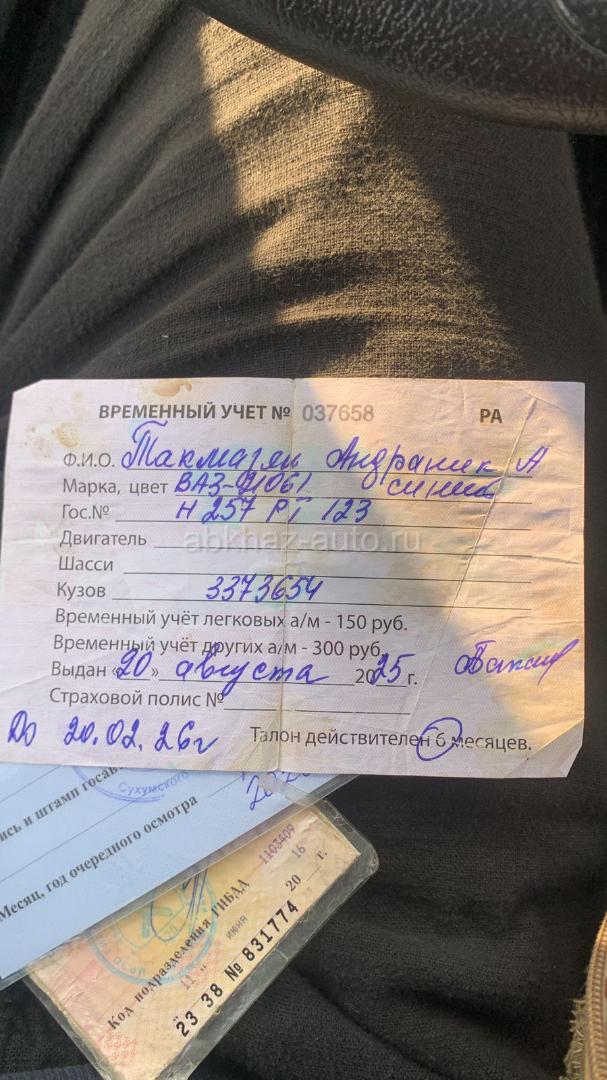 ВРЕМЕННЫЙ УЧЕТ № 037658 РА
Ф.И.О. Такмазян Андраник А
Марка, цвет ВАЗ-21061 синий
Гос.№ Н 257 РТ 123
Двигатель
abkhaz-auto.ru
Шасси
Кузов 3373654
Временный учёт легковых а/м - 150 руб.
Временный учёт других а/м - 300 руб
Выдан «20» августа 2025 г.
Страховой полис №
До 20.02.26г Талон действителен 6 месяцев.
Сухумского
Месяц, год очередного осмотра
1103409
Код подразделения ГИБДД
11 июня 2016 г.
23 38 № 831774